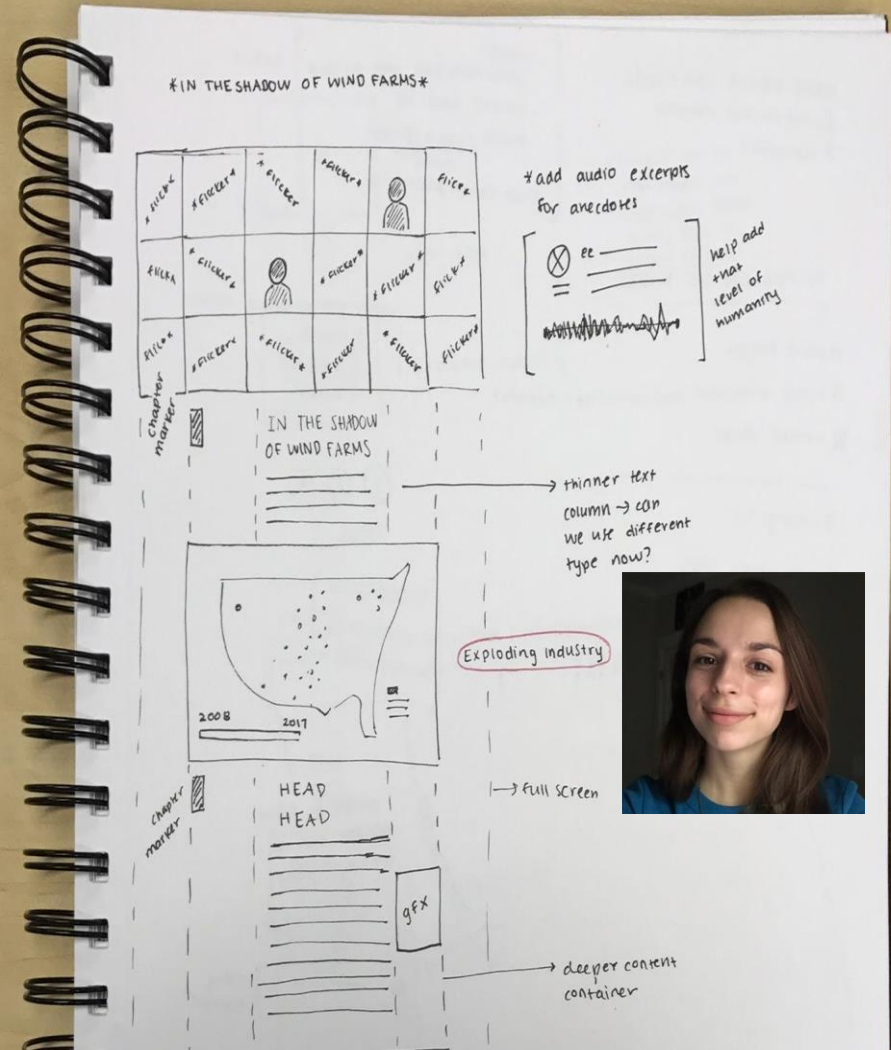 *IN THE SHADOW OF WIND FARMS*
*flicker* *flicker* *flicker *flicker* flicker
flicker *flicker* *flicker* *flicker* flicker*
flicker* *flicker* *flicker* *flicker *flicker flicker*
*add audio excerpts
for anecdotes
ee
help add
that
level of
humanity
chapter
marker
IN THE SHADOW
OF WIND FARMS
thinner text
column → can
we use different
type now?
Exploding industry
2008 2017
chapter
marker
HEAD
HEAD
→ full screen
gfx
deeper content
container